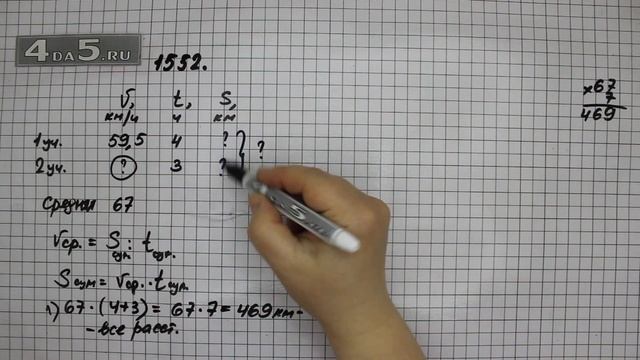 4DA5.RU
1552.
V, t, S,
км/ч ч км
1 уч. 59,5 4 ? } ?
2 уч. ? 3 ?
Средняя 67
Vср. = Sсум : tсум.
Sсум = Vср. · tсум.
1) 67 · (4+3) = 67 · 7 = 469 км -
- все расст.
×67
7
469